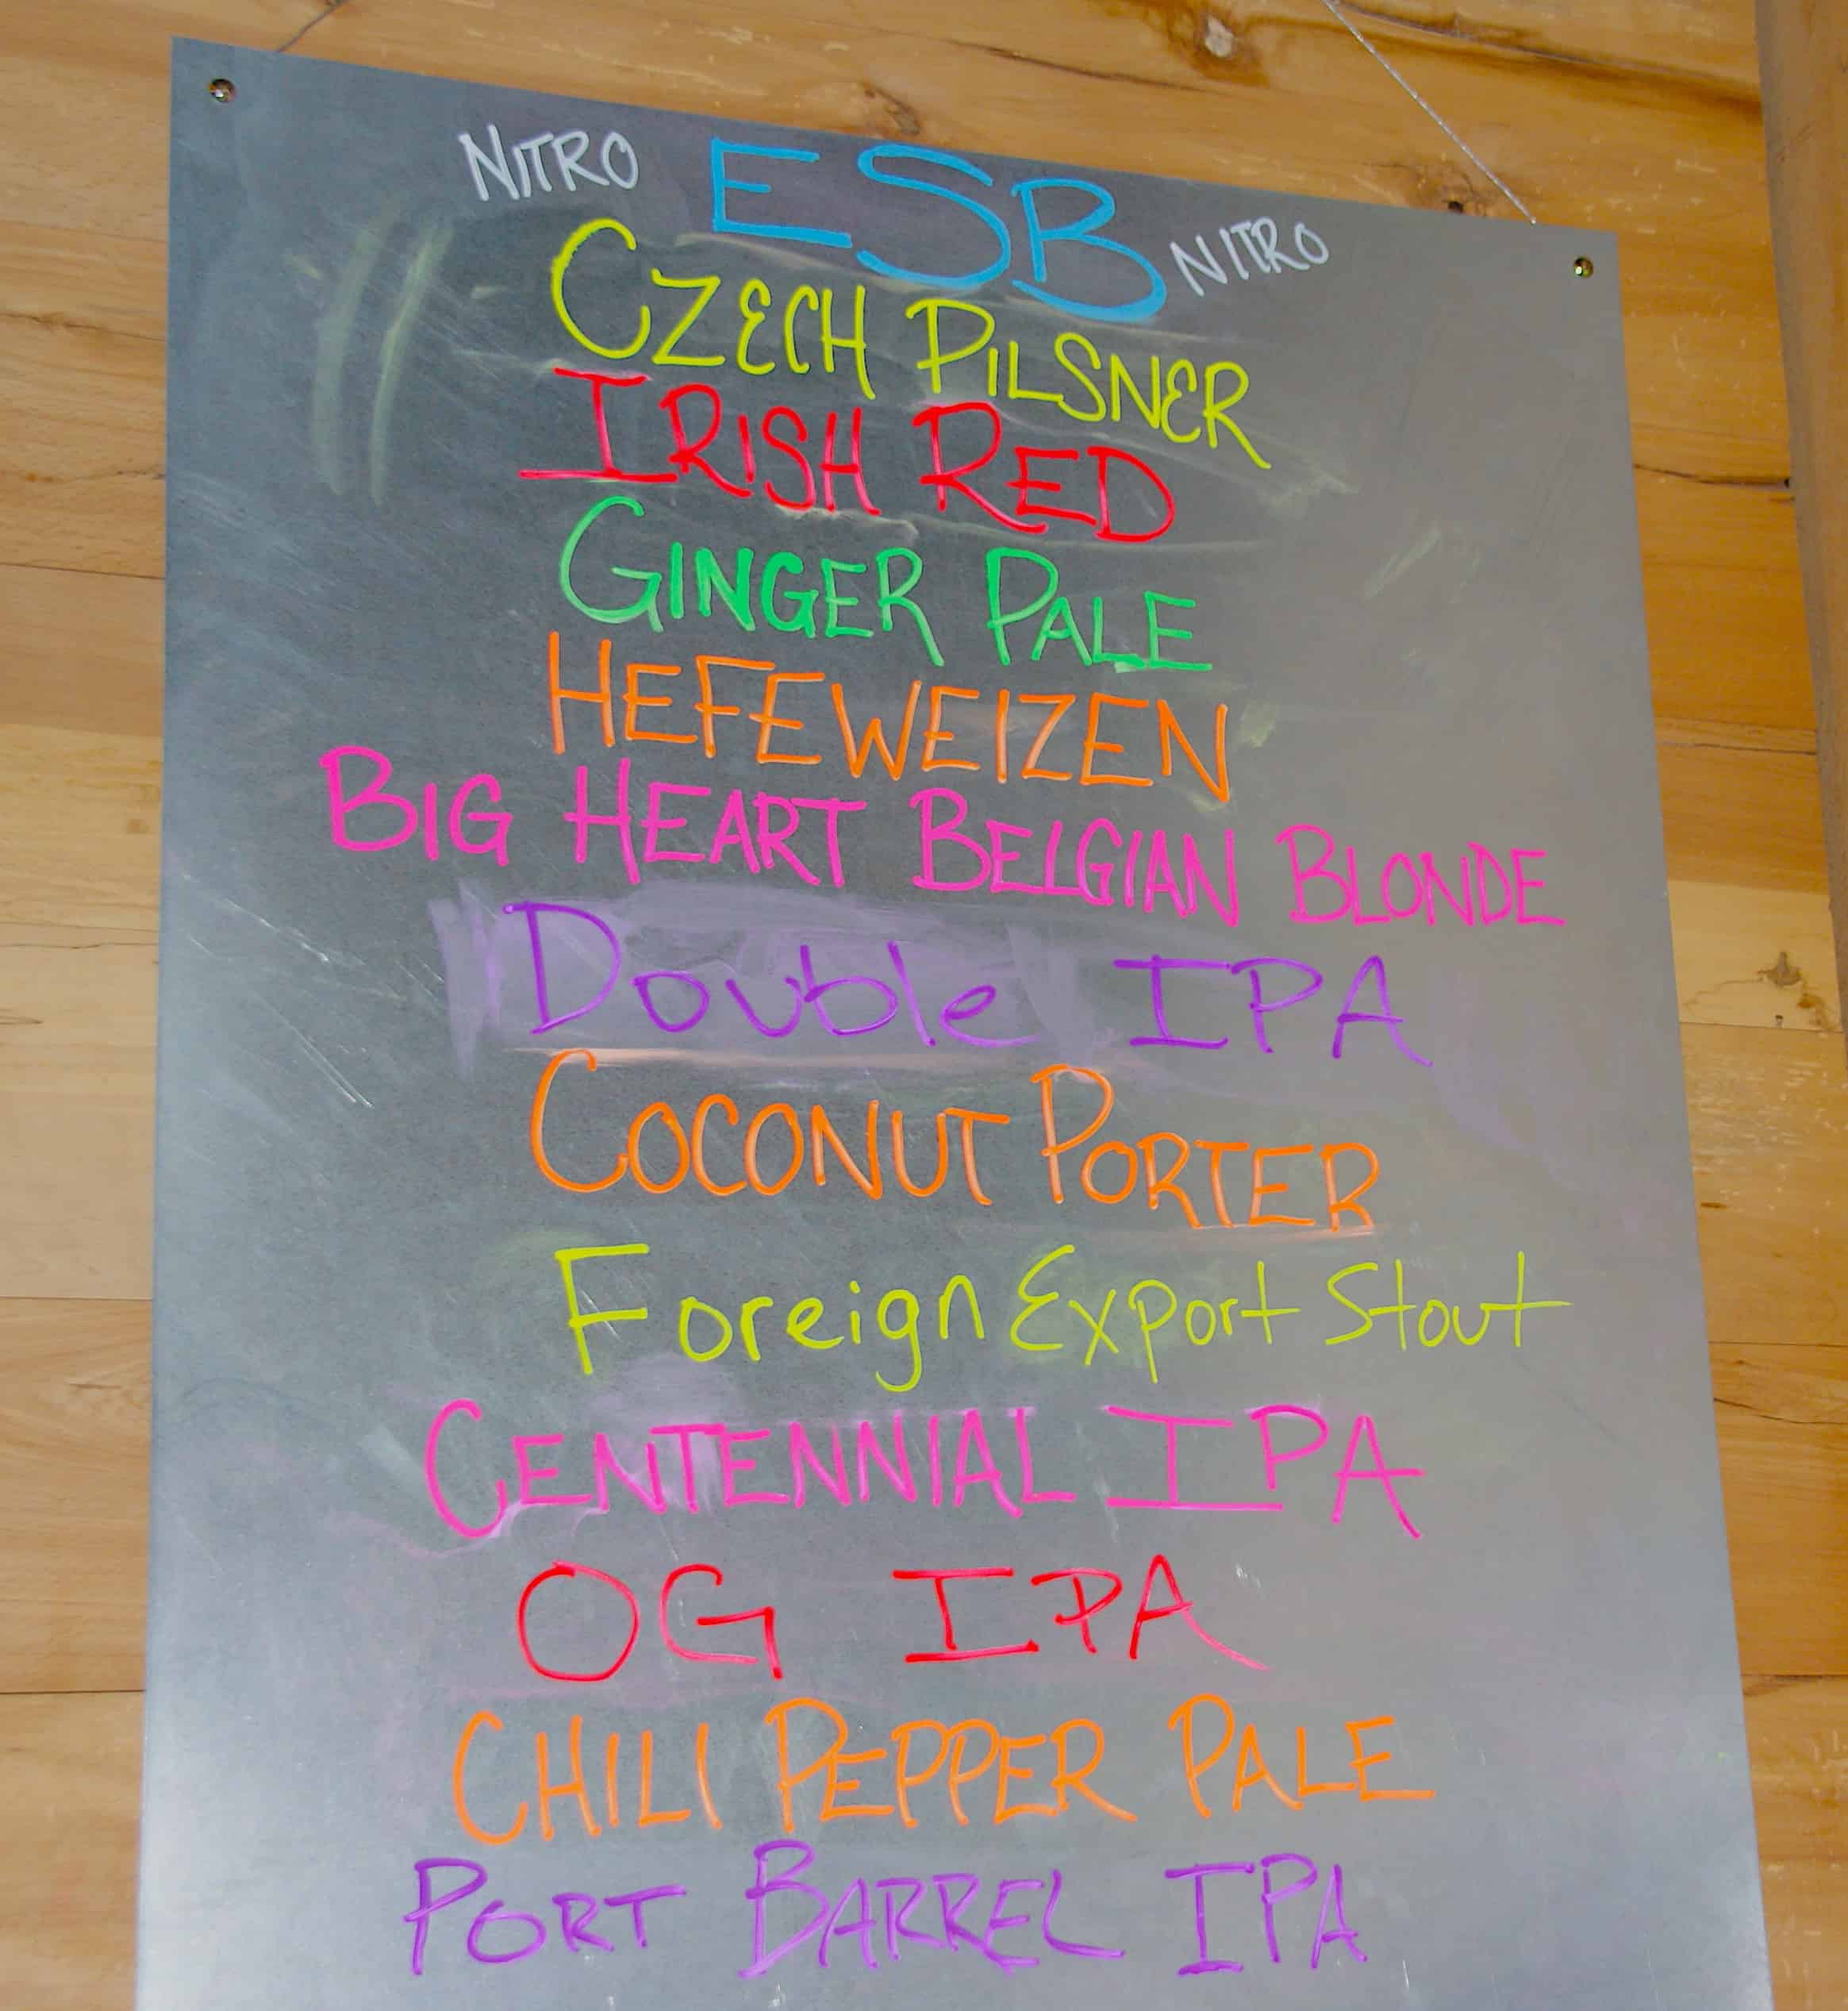 NITRO ESB NITRO
CZECH PILSNER
IRISH RED
GINGER PALE
HEFEWEIZEN
BIG HEART BELGIAN BLONDE
Double IPA
COCONUT PORTER
Foreign Export Stout
CENTENNIAL IPA
OG IPA
CHILI PEPPER PALE
PORT BARREL IPA